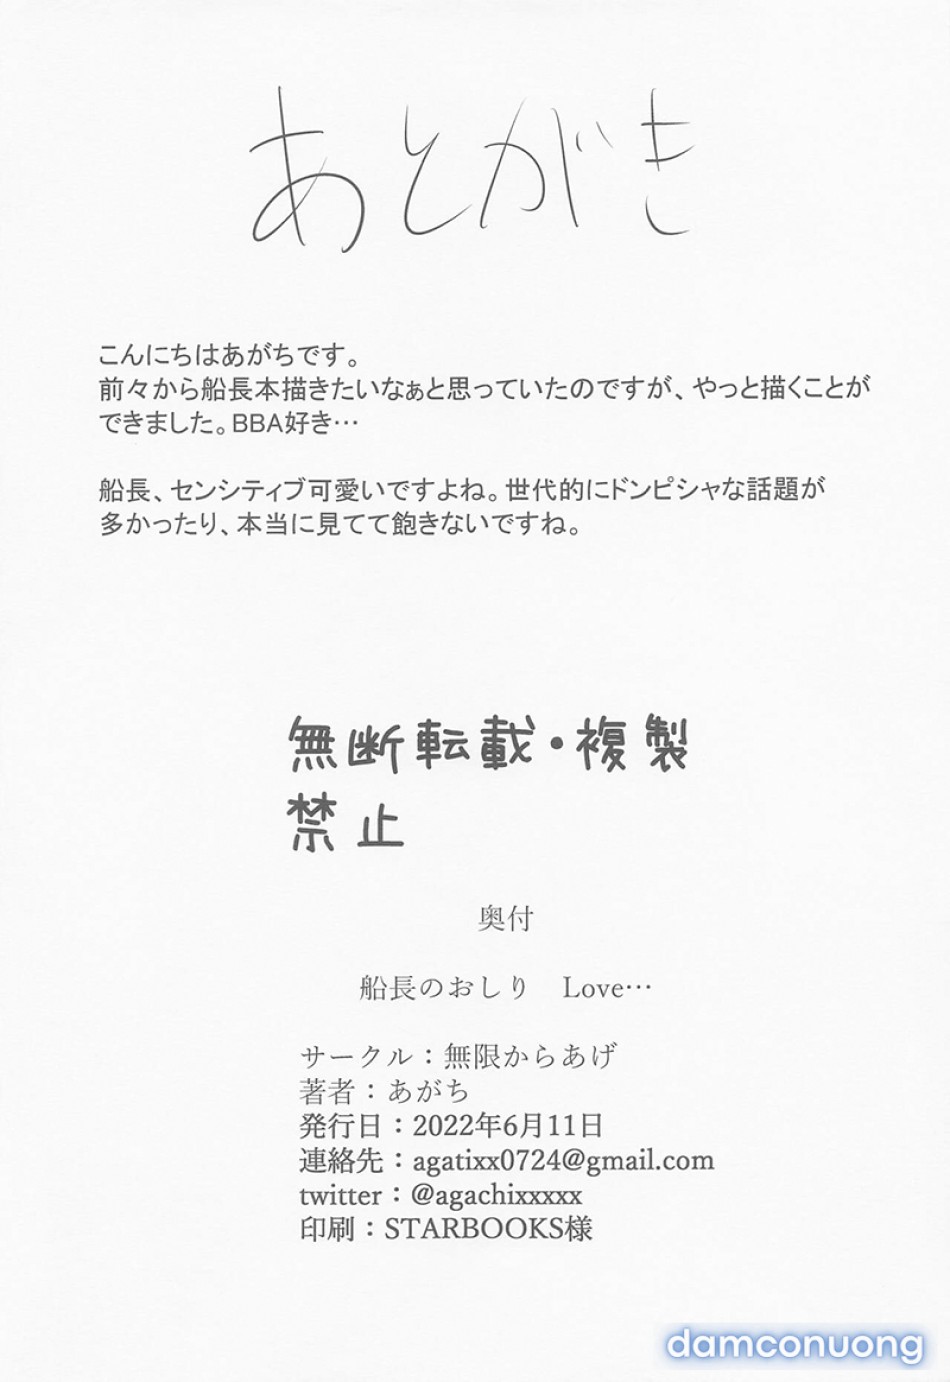 あとがき
こんにちはあがちです。
前々から船長本描きたいなぁと思っていたのですが、やっと描くことが
できました。BBA好き…
船長、センシティブ可愛いですよね。世代的にドンピシャな話題が
多かったり、本当に見てて飽きないですね。
無断転載・複製
禁止
奥付
船長のおしり　Love…
サークル：無限からあげ
著者：あがち
発行日：2022年6月11日
連絡先：agatixx0724@gmail.com
twitter：@agachixxxxx
印刷：STARBOOKS様
damconuong